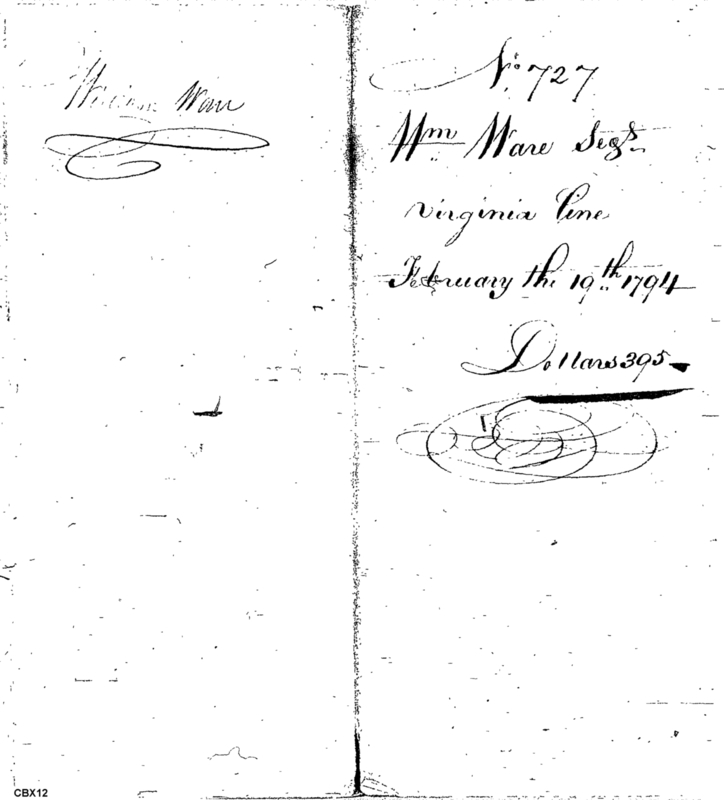 William Ware
No. 727
Wm Ware Segt
Virginia Line
February the 19th 1794
Dollars 395
CBX12